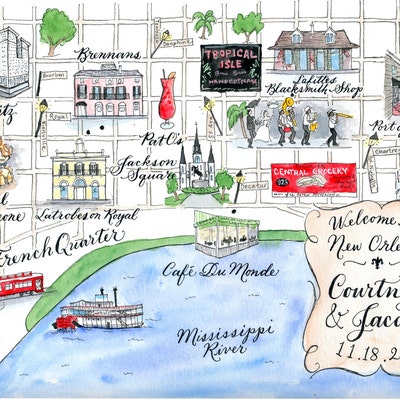 Brennans
TROPICAL
ISLE
HAND GRENADE
Lafittes
Blacksmith Shop
Bourbon
Royal
Pat O's
Jackson
Square
CENTRAL GROCERY
923
Decatur
Chartres
Latrobes on Royal
French Quarter
Café Du Monde
Mississippi
River
Welcome
New Orle
Courtn
& Jaco
11.18.2